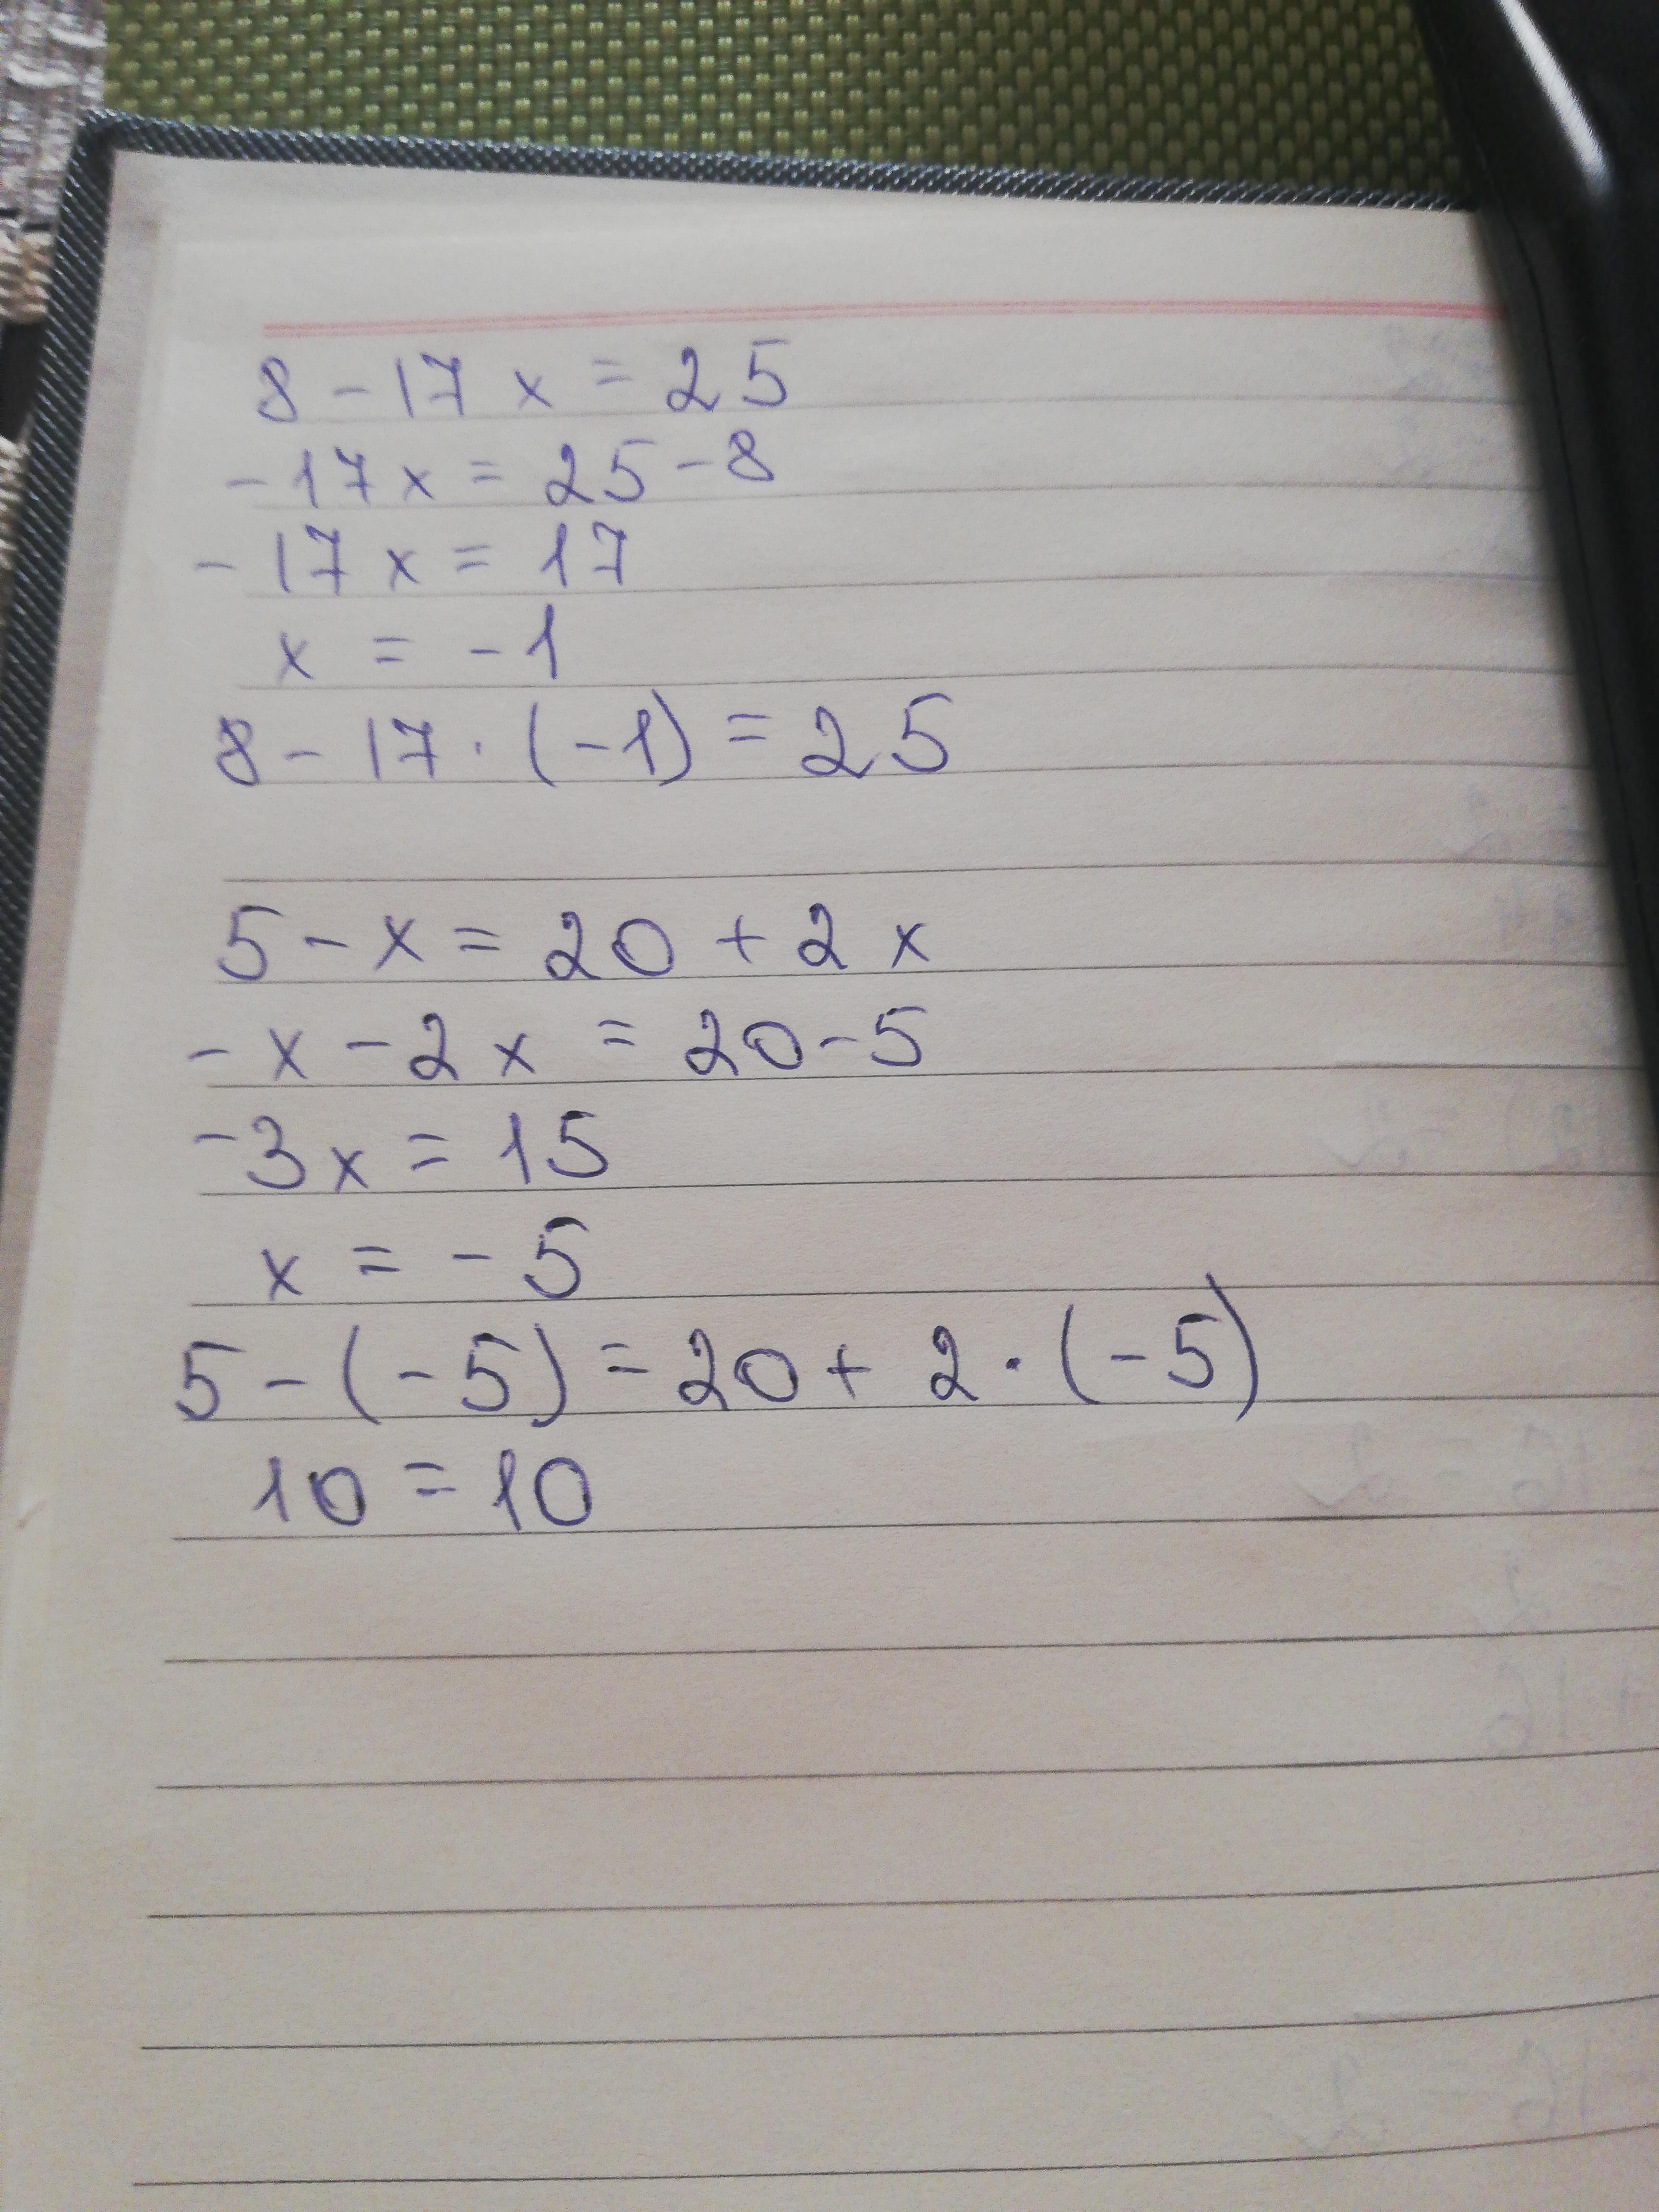 8 - 17 x = 25
- 17 x = 25 - 8
- 17 x = 17
x = - 1
8 - 17 · (-1) = 25
5 - x = 20 + 2 x
- x - 2 x = 20 - 5
- 3 x = 15
x = - 5
5 - (-5) = 20 + 2 · (-5)
10 = 10